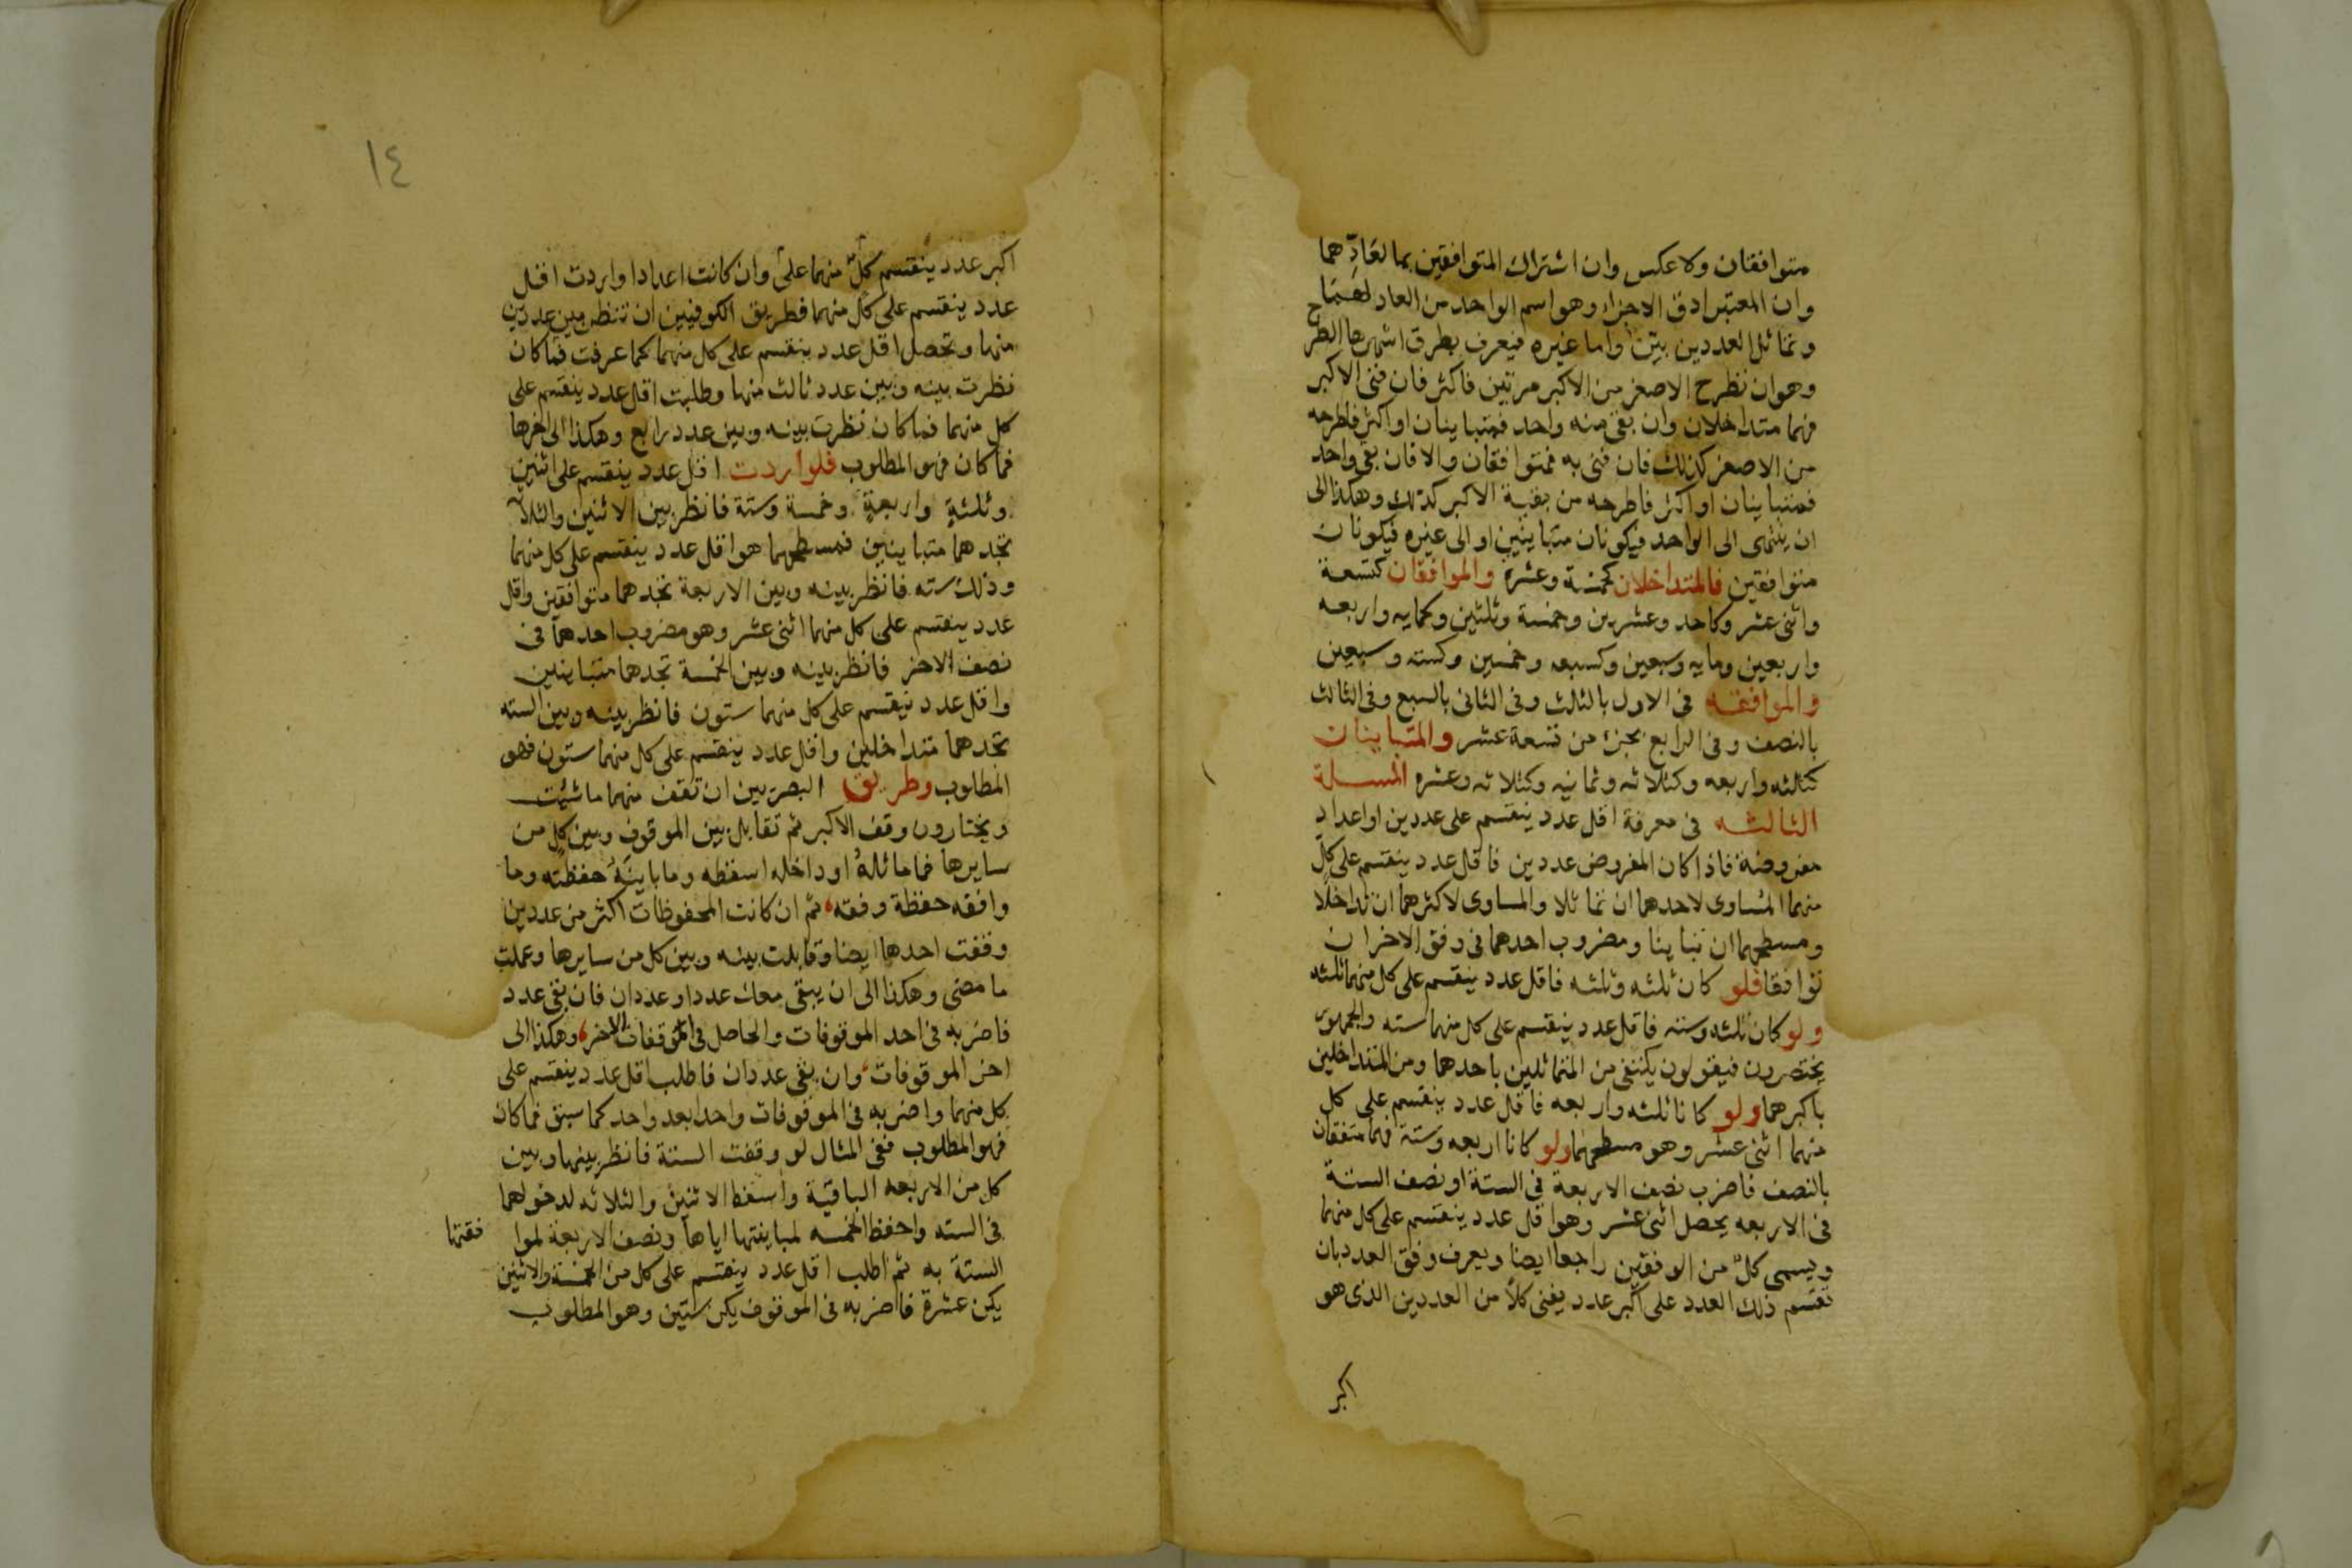 متوافقان ولا عكس وان اشتراك المتوافقين بما لعادّهما
وان المعتبر ادق الاجزاء وهو اسم الواحد من العاد لهما
وتماثل العددين بيّن واما غيره فيعرف بطرق اشهرها الطرح
وهو ان تطرح الاصغر من الاكبر مرتين فاكثر فان فنى الاكبر
فهما متداخلان وان بقى منه واحد فمتباينان او اكثر فاطرحه
من الاصغر كذلك فان فنى به فمتوافقان والا فان بقى واحد
فمتباينان او اكثر فاطرحه من بقية الاكبر كذلك وهكذا الى
ان ينتهى الى الواحد فيكونان متباينين او الى غيره فيكونان
متوافقين فالمتداخلان كخمسة وعشرة والموافقان كتسعة
واثنى عشر وكاحد وعشرين وخمسة وثلثين وكمايه واربعه
واربعين ومايه وسبعين وكسبعه وخمسين وكسته وسبعين
والموافقه فى الاول بالثالث وفى الثانى بالسبع وفى الثالث
بالنصف وفى الرابع بجزء من تسعة عشر والمتباينان
كثلثه واربعه وكثلاثه وثمانيه وكثلاثه وعشره المسلة
الثالثه فى معرفة اقل عدد ينقسم على عددين او اعداد
مفروضة فاذا كان المفروض عددين فاقل عدد ينقسم على كلّ
منهما المساوى لاحدهما ان تماثلا والمساوى لاكثرهما ان تداخلا
ومسطحهما ان تباينا ومضروب احدهما فى وفق الاخر ان
توافقا فلو كان ثلثه وثلثه فاقل عدد ينقسم على كل منهما ثلثه
ولو كان ثلثه وسته فاقل عدد ينقسم على كل منهما سته والجمهور
يختصرون فيقولون يكتفى من المتماثلين باحدهما ومن المتداخلين
باكبرهما ولو كانا ثلثه واربعه فاقل عدد ينقسم على كل
منهما اثنى عشر وهو مسطحهما ولو كانا اربعه وستة فهما متفقان
بالنصف فاضرب نصف الاربعة فى الستة او نصف الستة
فى الاربعه يحصل اثنى عشر وهو اقل عدد ينقسم على كل منهما
ويسمى كلّ من الوفقين راجعا ايضا ويعرف وفق العدد بان
تقسم ذلك العدد على اكبر عدد يفنى كلاً من العددين الذى هو
اكبر
١٤
اكبر عدد ينقسم كلّ منهما على وان كانت اعدادا واردت اقل
عدد ينقسم على كل منهما فطريق الكوفيين ان تنظر بين عددين
منها وتحصل اقل عدد ينقسم على كل منهما كما عرفت فما كان
نظرت بينه وبين عدد ثالث منها وطلبت اقل عدد ينقسم على
كل منهما فما كان نظرت بينه وبين عدد رابع وهكذا الى اخرها
فما كان فهو المطلوب فلو اردت اقل عدد ينقسم على اثنين
وثلثةٍ واربعةٍ وخمسة وستة فانظر بين الاثنين والثلاثة
تجدهما متباينين فمسطحهما هو اقل عدد ينقسم على كل منهما
وذلك سته فانظر بينه وبين الاربعة تجدهما متوافقين واقل
عدد ينقسم على كل منهما اثنى عشر وهو مضروب احدهما فى
نصف الاخر فانظر بينه وبين الخمسة تجدهما متباينين
واقل عدد ينقسم على كل منهما ستون فانظر بينه وبين السته
تجدهما متداخلين واقل عدد ينقسم على كل منهما ستون فهو
المطلوب وطريق البصريين ان تقف منهما ما شئت
ويختارون وقف الاكبر ثم تقابل بين الموقوف وبين كل من
سايرها فما ماثلهُ او داخله اسقطه وما باينَهُ حفظته وما
وافقه حفظة وفقه ثم ان كانت المحفوظات اكثر من عددين
وقفت احدها ايضا وقابلت بينه وبين كل من سايرها وعملت
ما مضى وهكذا الى ان يبقى معك عدد او عددان فان بقى عدد
فاضربه فى احد الموقوفات والحاصل فى الموقفات الاخر وهكذا الى
اخر الموقوفات وان بقى عددان فاطلب اقل عدد ينقسم على
كل منهما واضربه فى الموقوفات واحدا بعد واحد كما سبق فما كان
فهو المطلوب ففى المثال لو وقفت الستة فانظر بينها وبين
كل من الاربعه الباقية واسقط الاثنين والثلاثه لدخولهما
فى السته واحفظ الخمسه لمباينتها اياها ونصف الاربعة لموا فقتها
الستة به ثم اطلب اقل عدد ينقسم على كل من الخمسة والاثنين
يكن عشرة فاضربه فى الموقوف يكن ستين وهو المطلوب